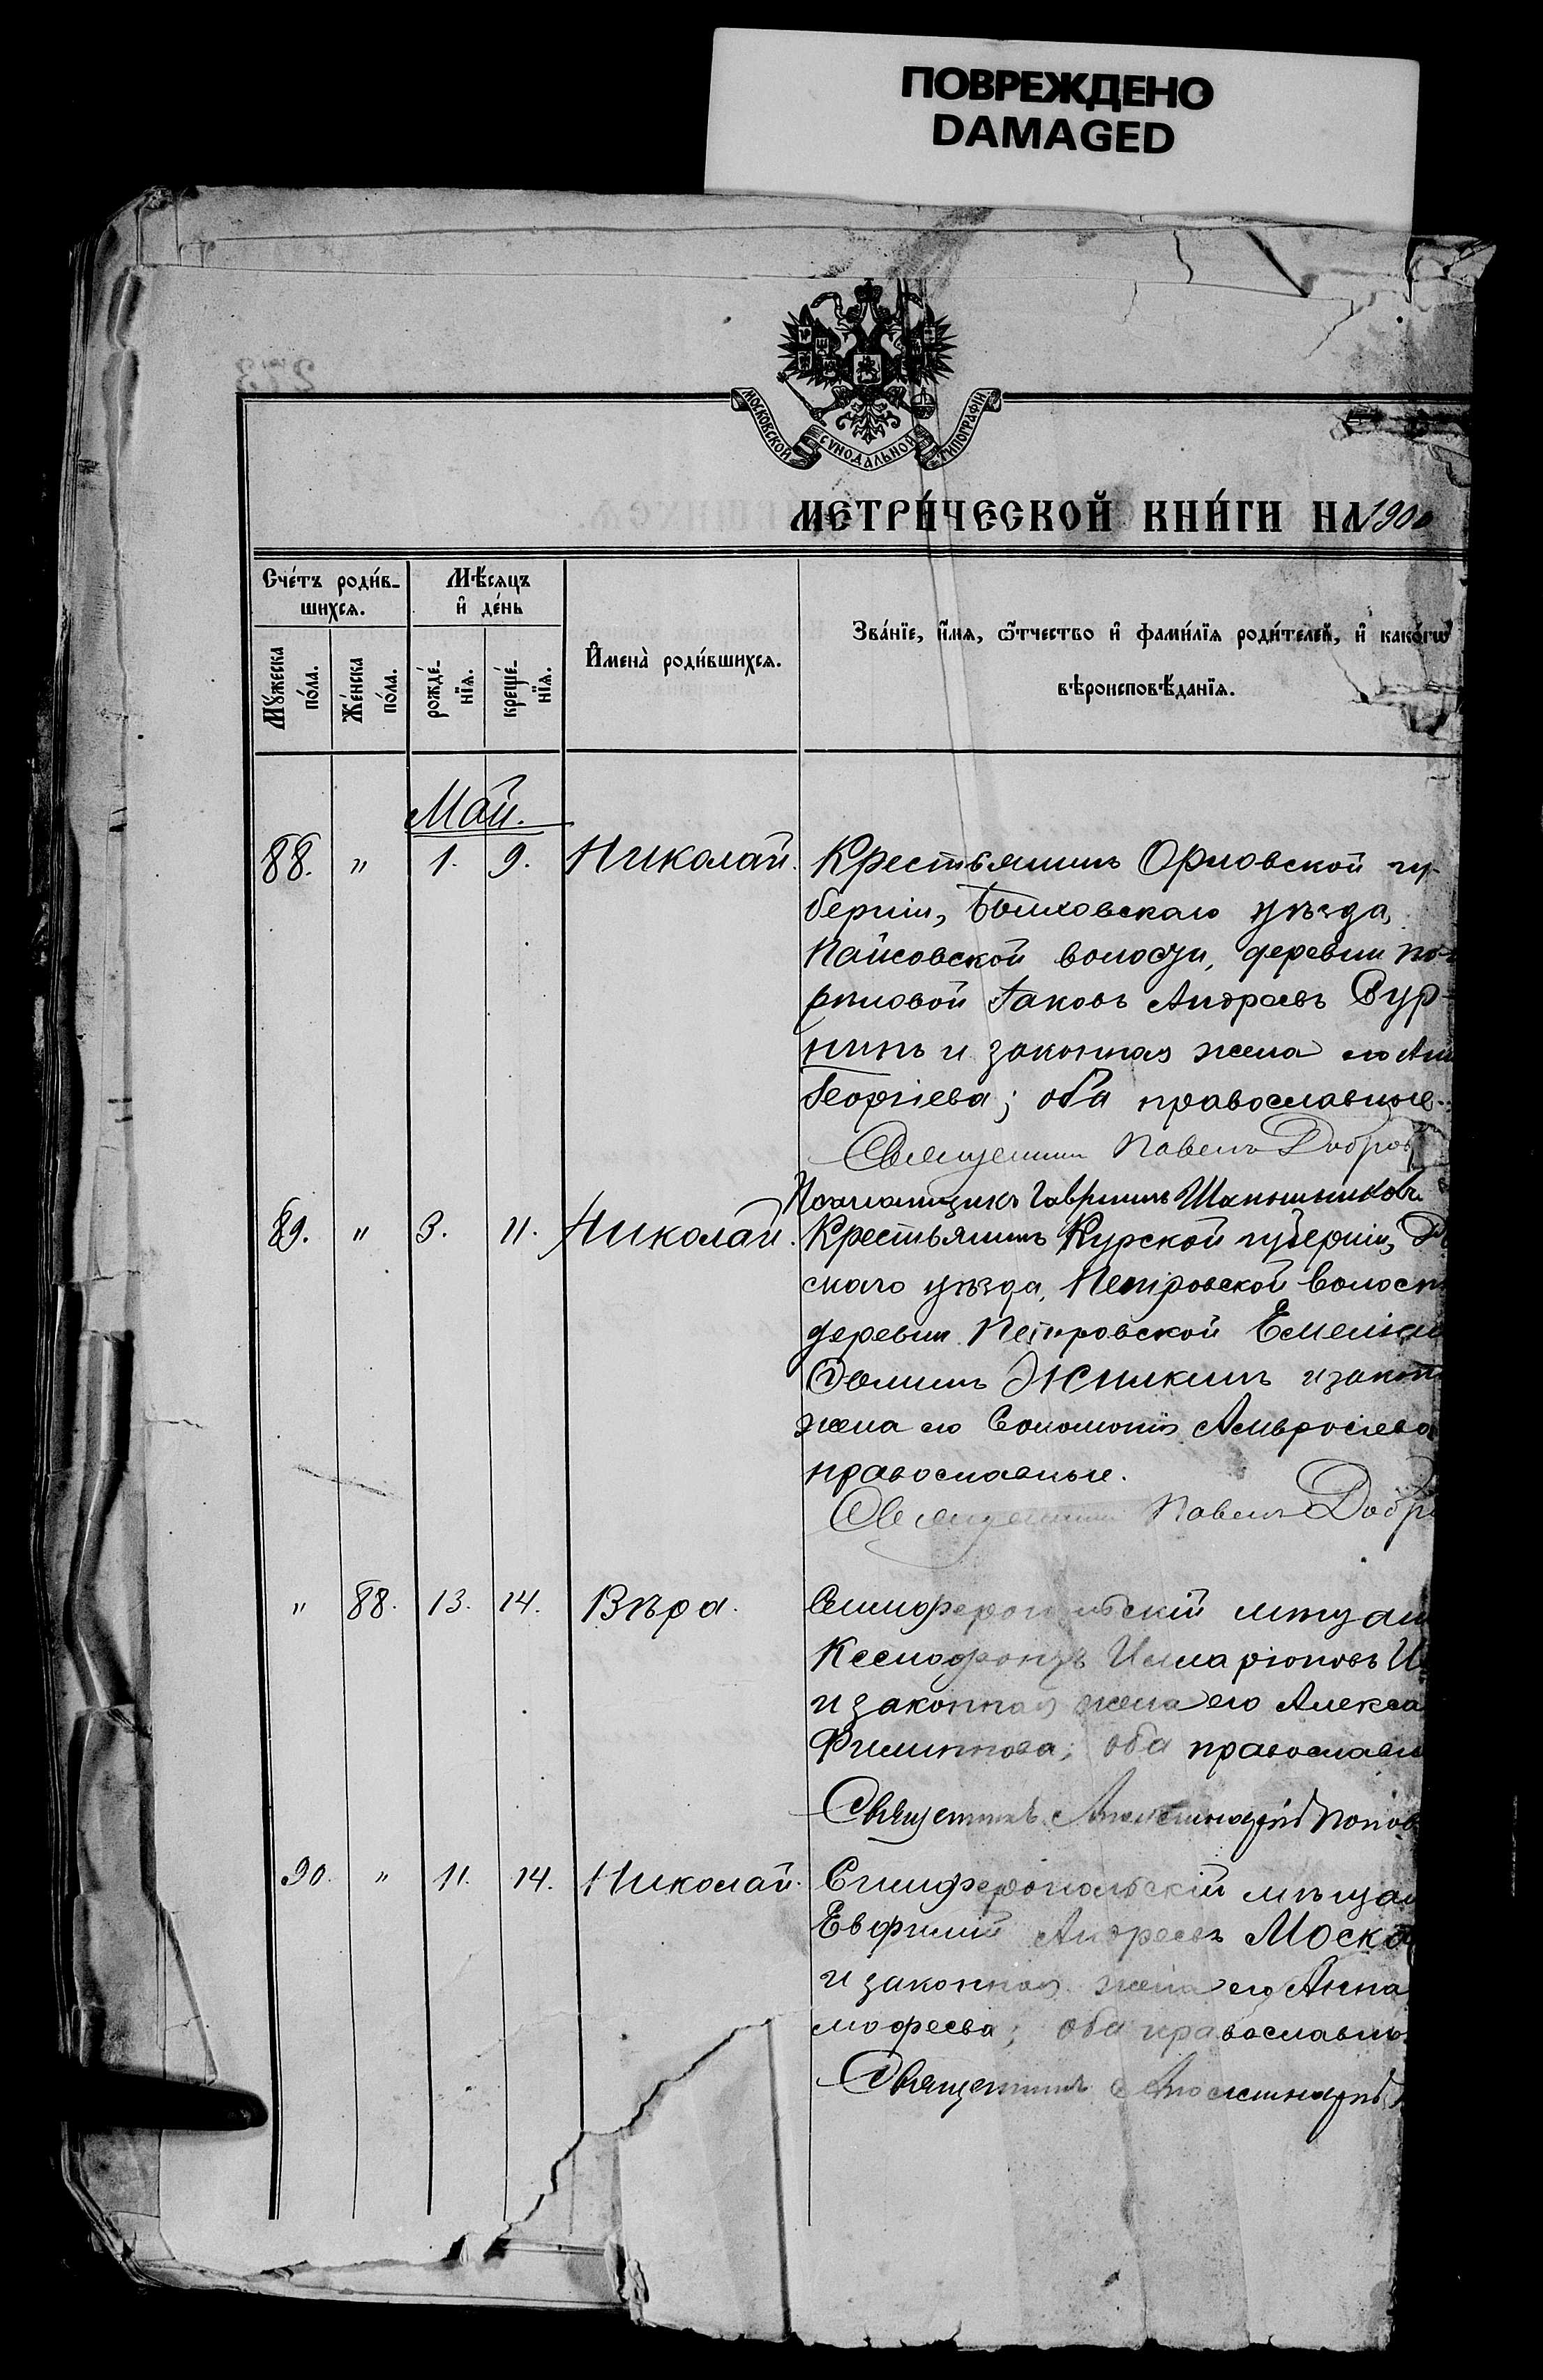 ПОВРЕЖДЕНО
DAMAGED
МОСКОВСКОЙ СѴНОДАЛЬНОЙ ТИПОГРАФІИ
МЕТРИ́ЧЕСКОЙ КНИ́ГИ НА 1900
Сче́тъ роди́в-
шихсѧ.
Мѣ́сѧцъ
и҆ де́нь
Мꙋ́жеска
по́ла.
Же́нска
по́ла.
рожде́-
нїѧ.
креще́-
нїѧ.
И҆мена̀ роди́вшихсѧ.
Зва́нїе, и҆́мѧ, ѻ҆́тчество и҆ фами́лїѧ роди́телей, и҆ како́гѡ
вѣроисповѣ́данїѧ.
Май.
88. " 1. 9. Николай. Крестьянинъ Орловской гу-
берніи, Болховскаго уѣзда,
волости, деревни
Іаковъ Андреевъ Бур-
нинъ и законная жена его
Георгіева; оба православные.
Священникъ Павелъ Добров
Псаломщикъ Гавриилъ
89. " 3. 11. Николай. Крестьянинъ Курской губерніи,
скаго уѣзда, Петровской волост
деревни Петровской Емеліан
и закон
жена его Соломонія Амвросіева
православные.
Священникъ Павелъ Добр
" 88. 13. 14. Вѣра. Симферопольскій мѣщан
Ксенофонтъ Илларіоновъ И
и законная жена его Алекса
Филиппова; оба православн
Священникъ Аполлинарій Попов
90. " 11. 14. Николай. Симферопольскій мѣщан
Евфимій Андреевъ Моска
и законная жена его Анна
мофеева; оба православн
Священникъ Аполлинарій